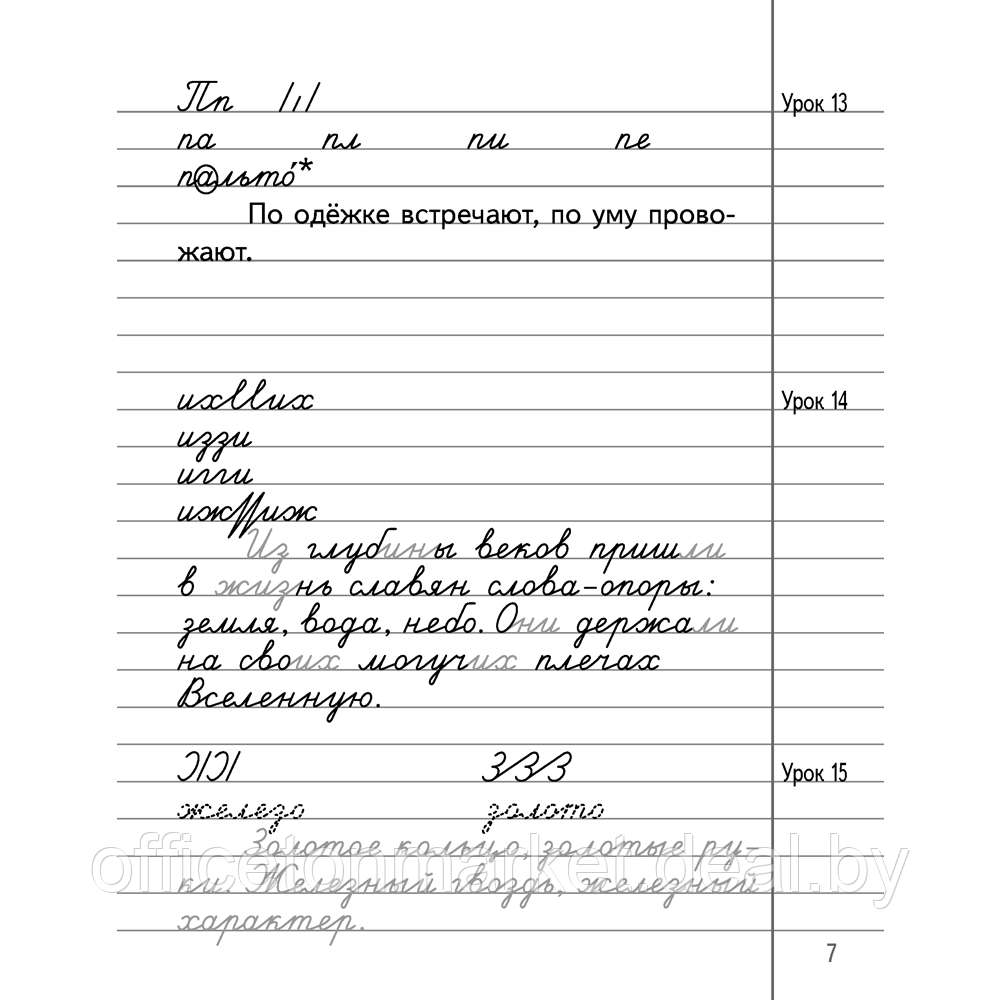 Пп
Урок 13
па пл пи пе
пальто́*
По одёжке встречают, по уму прово-
жают.
их их
Урок 14
иззи
игги
иж иж
Из глубины веков пришли
в жизнь славян слова-опоры:
земля, вода, небо. Они держали
на своих могучих плечах
Вселенную.
ЗЗЗ
Урок 15
железо золото
Золотое кольцо, золотые ру-
ки. Железный гвоздь, железный
характер.
officetonmarket.deal.by
7